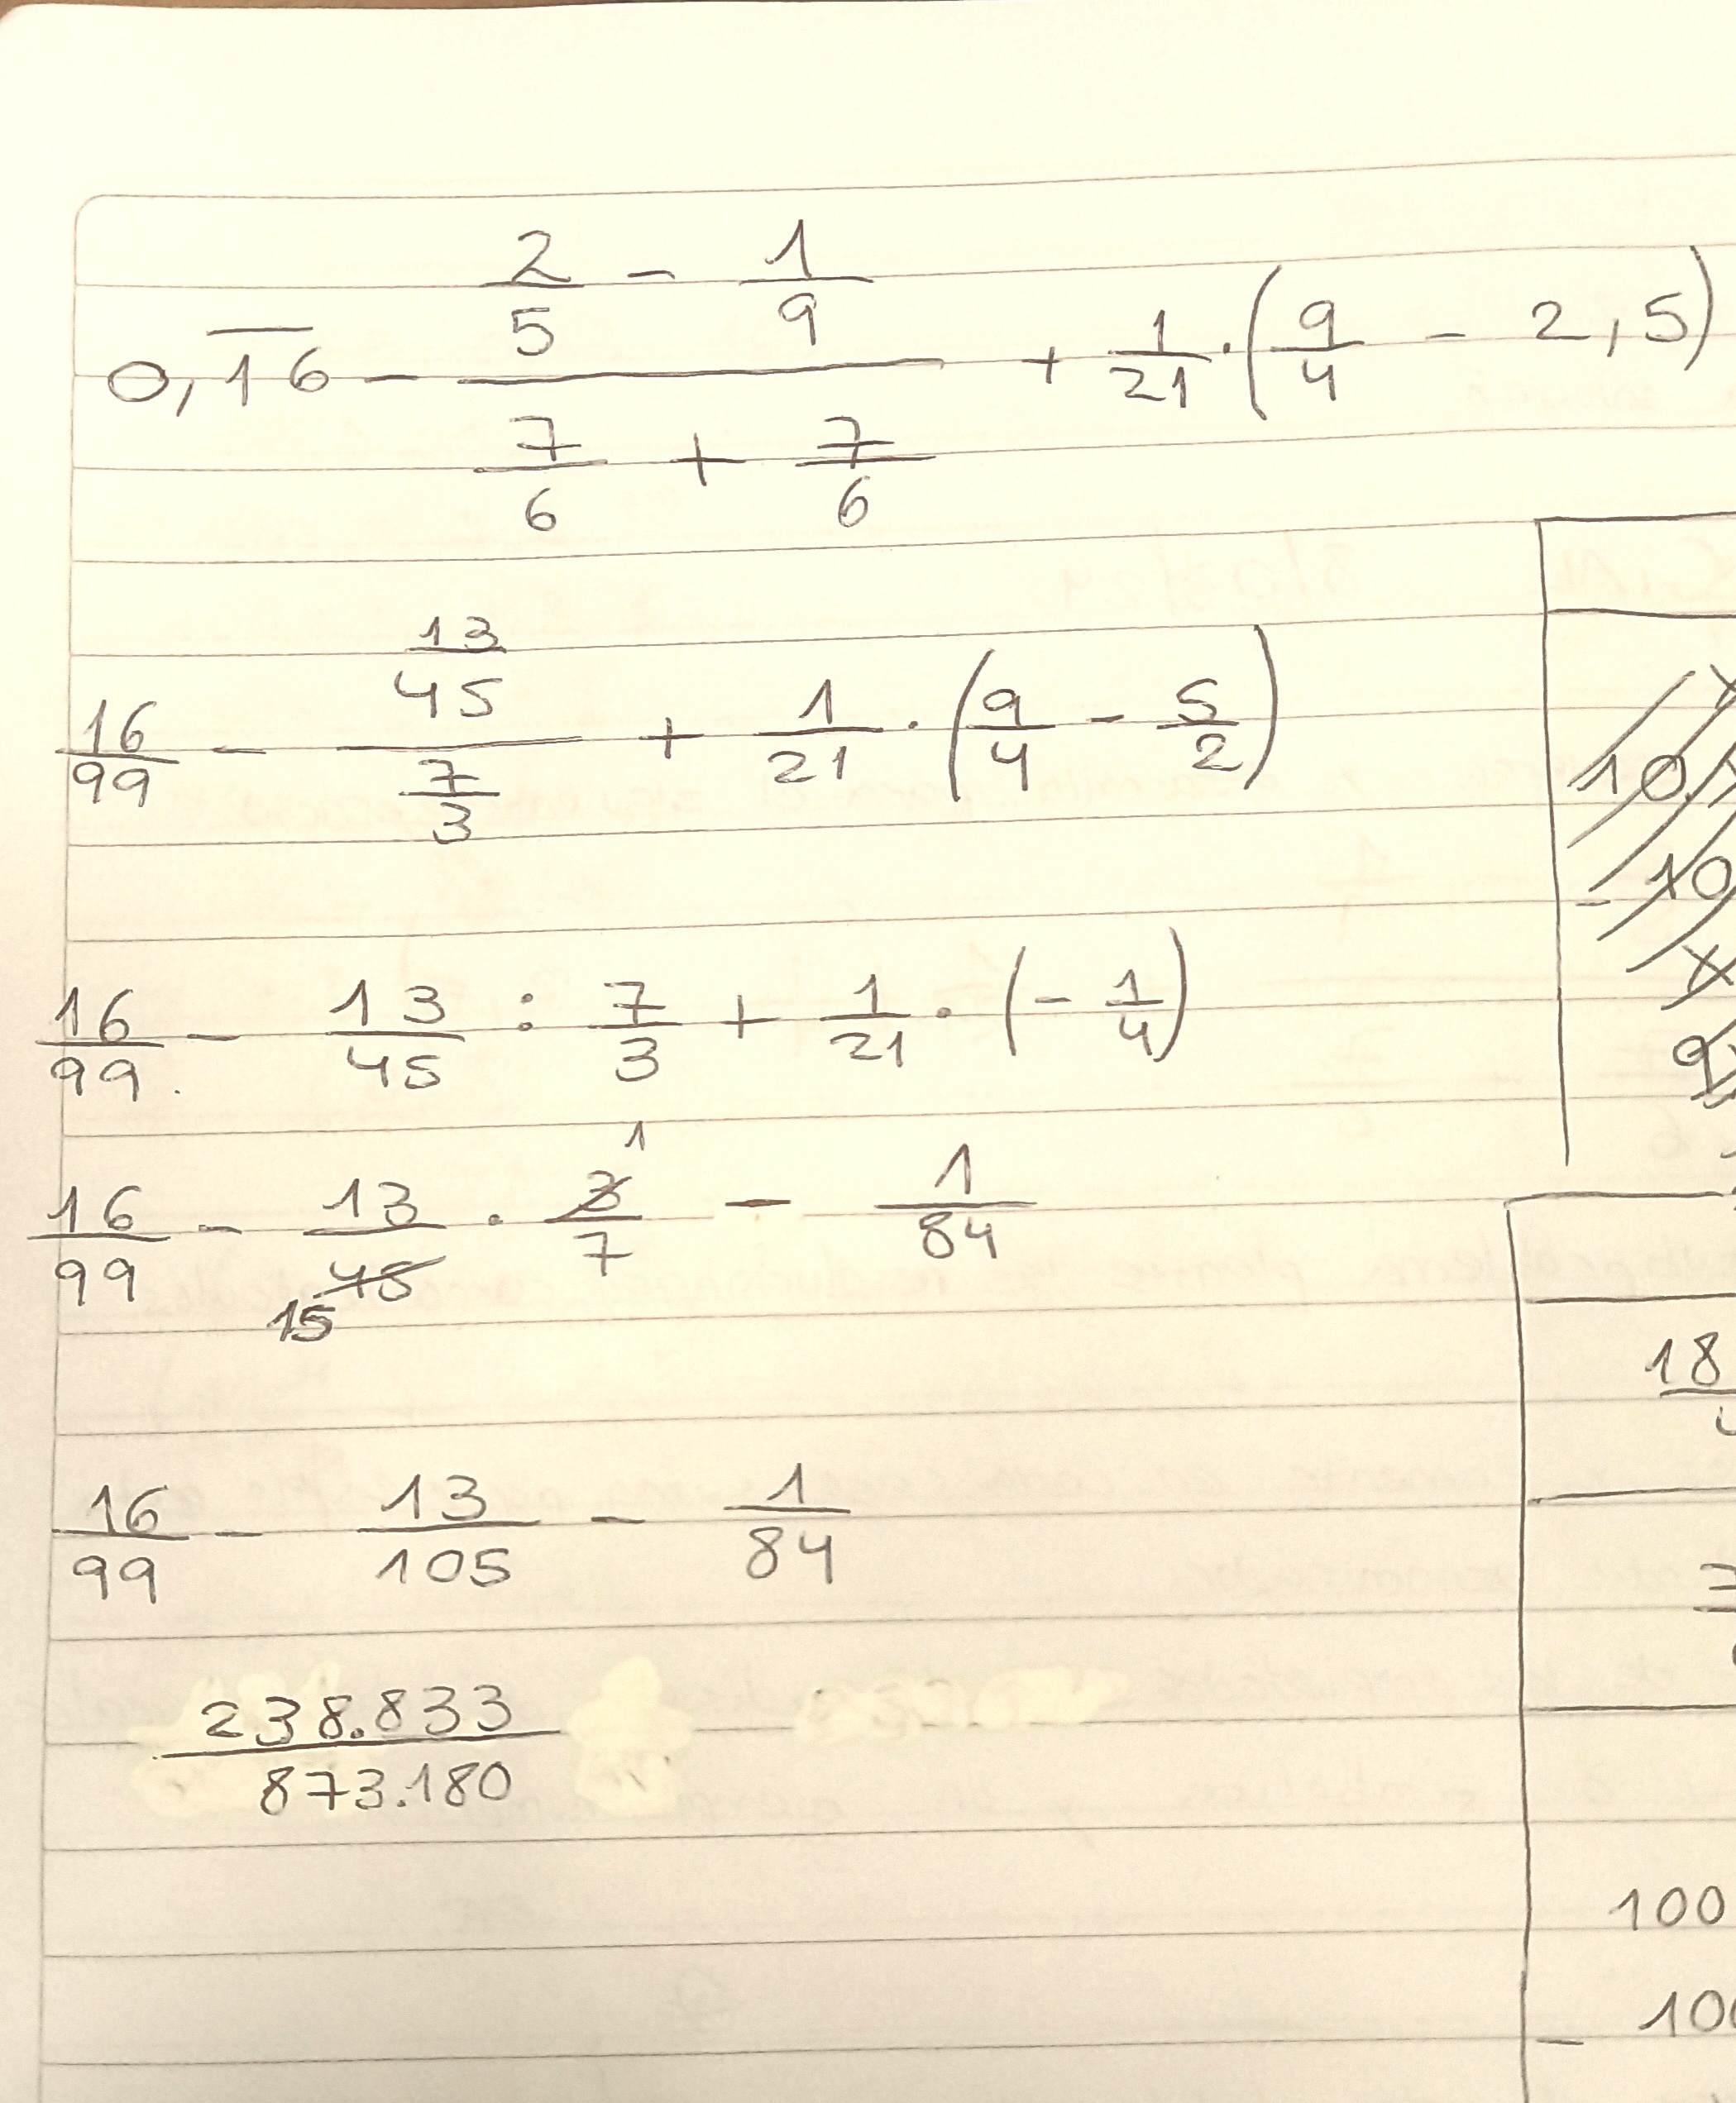 0,\overline{16} - \frac{\frac{2}{5} - \frac{1}{9}}{\frac{7}{6} + \frac{7}{6}} + \frac{1}{21} \cdot \left( \frac{9}{4} - 2,5 \right)
\frac{16}{99} - \frac{\frac{13}{45}}{\frac{7}{3}} + \frac{1}{21} \cdot \left( \frac{9}{4} - \frac{5}{2} \right)
\frac{16}{99} - \frac{13}{45} : \frac{7}{3} + \frac{1}{21} \cdot \left( -\frac{1}{4} \right)
\frac{16}{99} - \frac{13}{\cancel{45}_{15}} \cdot \frac{\cancel{3}^{1}}{7} - \frac{1}{84}
\frac{16}{99} - \frac{13}{105} - \frac{1}{84}
\frac{238.833}{873.180}
10
- 10
9
18
100
- 100